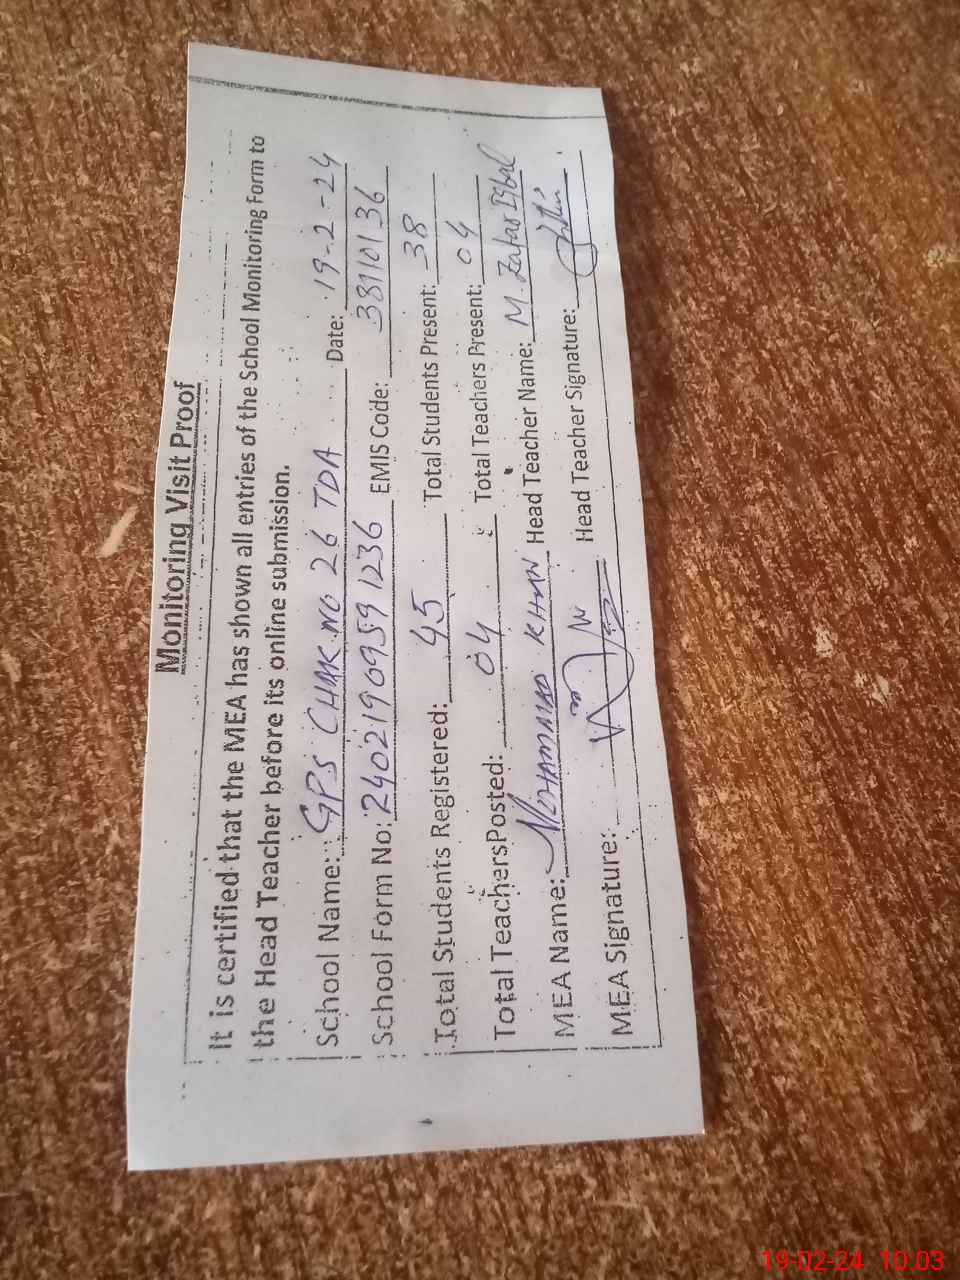 Monitoring Visit Proof
It is certified that the MEA has shown all entries of the School Monitoring Form to
the Head Teacher before its online submission.
School Name: GPS CHAK NO 26 TDA Date: 19-2-24
School Form No: 24021909591236 EMIS Code: 38110136
Total Students Registered: 45 Total Students Present: 38
Total Teachers Posted: 04 Total Teachers Present: 04
MEA Name: MOHAMMAD KHAN Head Teacher Name: M. Zafar Iqbal
MEA Signature: Head Teacher Signature:
19-02-24 10:03